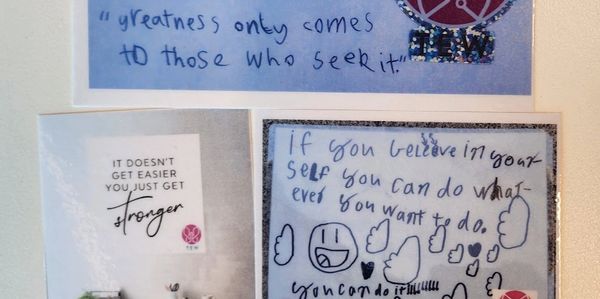 "greatness only comes
to those who seek it."
TEW
IT DOESN'T
GET EASIER
YOU JUST GET
stronger
TEW
If you believe in your-
self you can do what-
ever you want to do.
you can do it!!!!!!!!